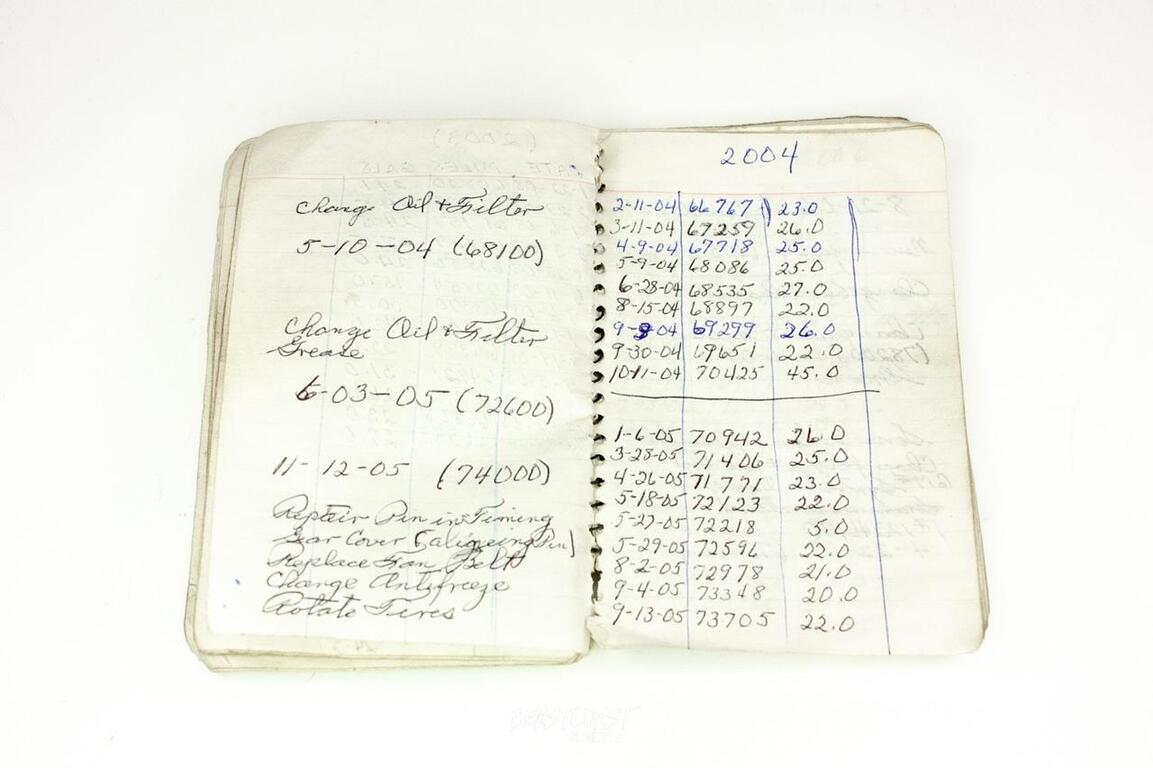 Change Oil + Filter
5-10-04 (68100)
Change Oil + Filter
Grease
6-03-05 (72600)
11-12-05 (74000)
Repair Pin in Timing
Gear Cover (aligneing Pin)
Replace Fan Belt
Change Antifreeze
Rotate Tires
2004
2-11-04 66767 23.0
3-11-04 67259 26.0
4-9-04 67718 25.0
5-9-04 68086 25.0
6-28-04 68535 27.0
8-15-04 68897 22.0
9-9-04 69299 26.0
9-30-04 69651 22.0
10-11-04 70425 45.0
1-6-05 70942 26.0
3-28-05 71406 25.0
4-26-05 71771 23.0
5-18-05 72123 22.0
5-27-05 72218 5.0
5-29-05 72596 22.0
8-2-05 72978 21.0
9-4-05 73348 20.0
9-13-05 73705 22.0
BEASTCOAST